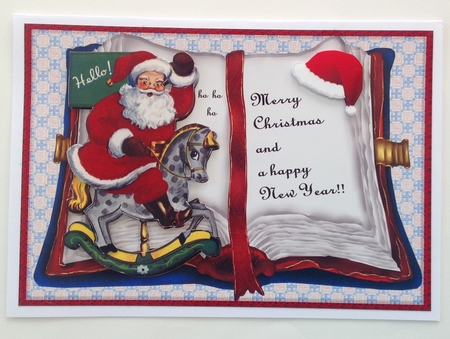 Hello!
ho ho
ho
Merry
Christmas
and
a happy
New Year!!